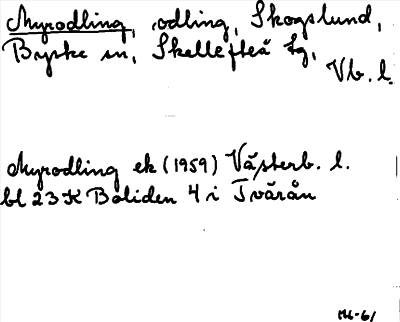 Myrodling, odling, Skogslund,
Byske sn, Skellefteå tg,
Vb. l.
Myrodling ek (1959) Västerb. l.
bl 23 K Boliden 4 i Tvärån